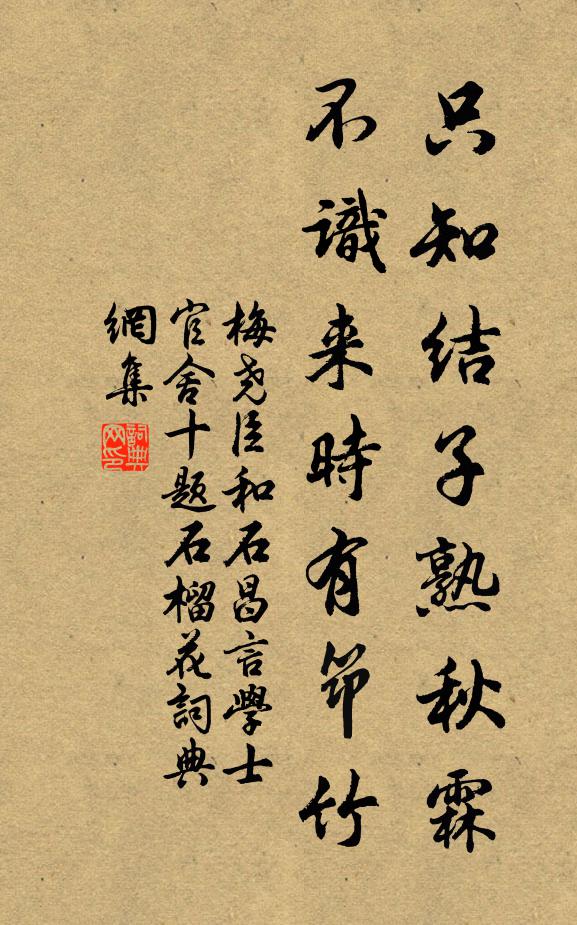 只知结子熟秋霖
不識来時有笻竹
梅尧臣和石昌言學士
官舍十题石榴花詞典
網集
詞典
网印